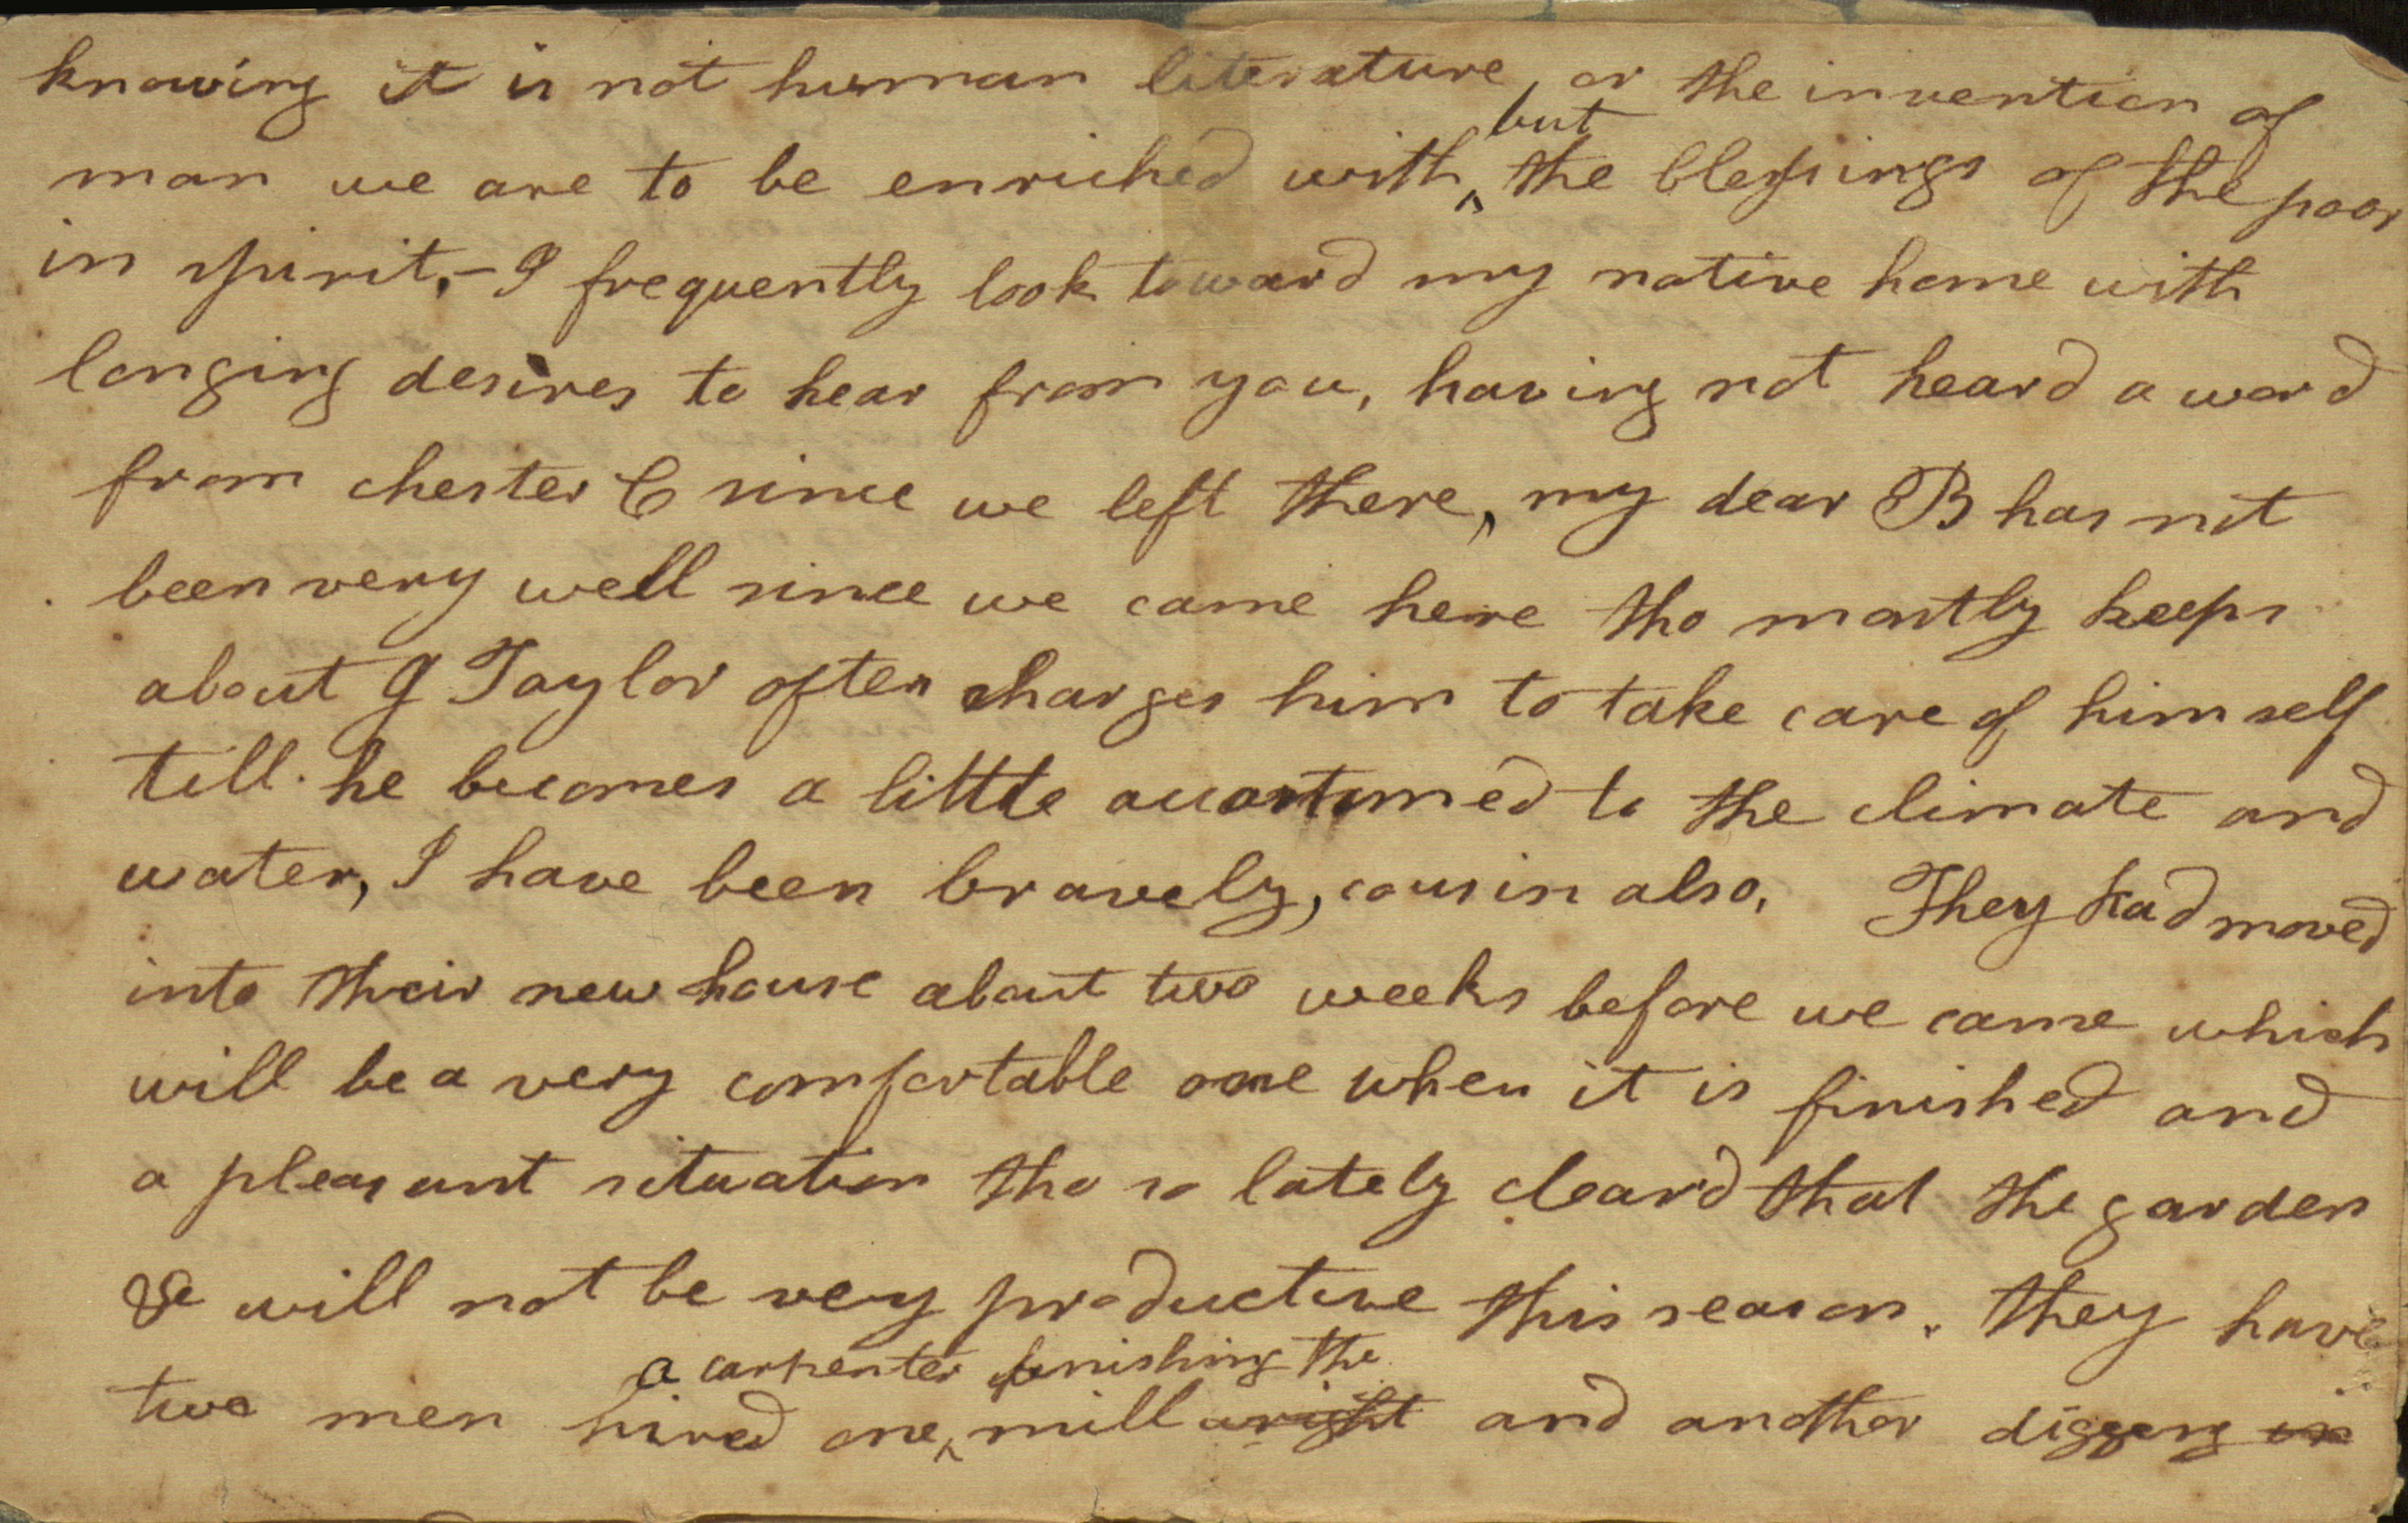 knowing it is not human literature, or the invention of
man we are to be enriched with but the blessings of the poor
in spirit,- I frequently look toward my native home with
longing desires to hear from you, having not heard a word
from chester C since we left there, my dear B has not
been very well since we came here tho mostly keeps
about J Taylor often charges him to take care of himself
till he becomes a little accostomed to the climate and
water, I have been bravely, cousin also, They had moved
into their new house about two weeks before we came which
will be a very comfortable one when it is finished and
a pleasant situation tho so lately cleard that the garden
&c will not be very productive this season. they have
a carpenter finishing the
two men hired one mill wright and another digging in